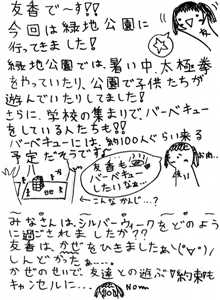 友香で〜す!!
今回は緑地公園に
行ってきました!
緑地公園では、暑い中、太極拳
をやっていたり、公園で子供たちが
遊んでいたりしました!
さらに、学校の集まりでバーベキュー
をしている人たちも!!
バーベキューには、約100人ぐらい来る
予定だそうです
友香も
バーベキュー
したいなぁ…
お肉…
←こんなかんじ…?
みなさんは、シルバーウィークをどのよう
に過ごされましたか??
友香は、かぜをひきましたぁ＼(°∀°)/
しんどかったぁ…。
かぜのせいで、友達との遊ぶ約束も
キャンセルに…